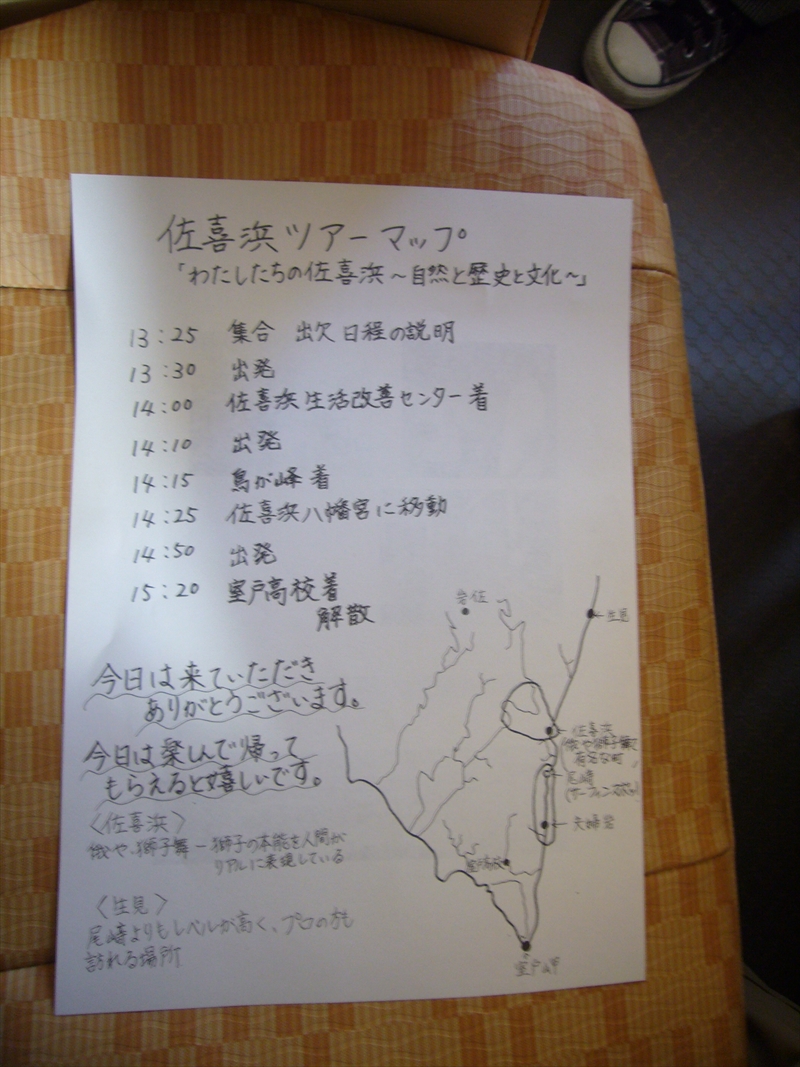 佐喜浜ツアーマップ
「わたしたちの佐喜浜～自然と歴史と文化～」
13:25 集合 出欠 日程の説明
13:30 出発
14:00 佐喜浜生活改善センター着
14:10 出発
14:15 鳥が峰着
14:25 佐喜浜八幡宮に移動
14:50 出発
15:20 室戸高校着
解散
今日は来ていただき
ありがとうございます。
今日は楽しんで帰って
もらえると嬉しいです。
〈佐喜浜〉
俄や、獅子舞－獅子の本能を人間が
リアルに表現している
〈生見〉
尾崎よりもレベルが高く、プロの方も
訪れる場所
岩佐
←生見
←佐喜浜
(俄や獅子舞で
有名な町)
←尾崎
(サーフィン
←夫婦岩
室戸高校
室戸岬